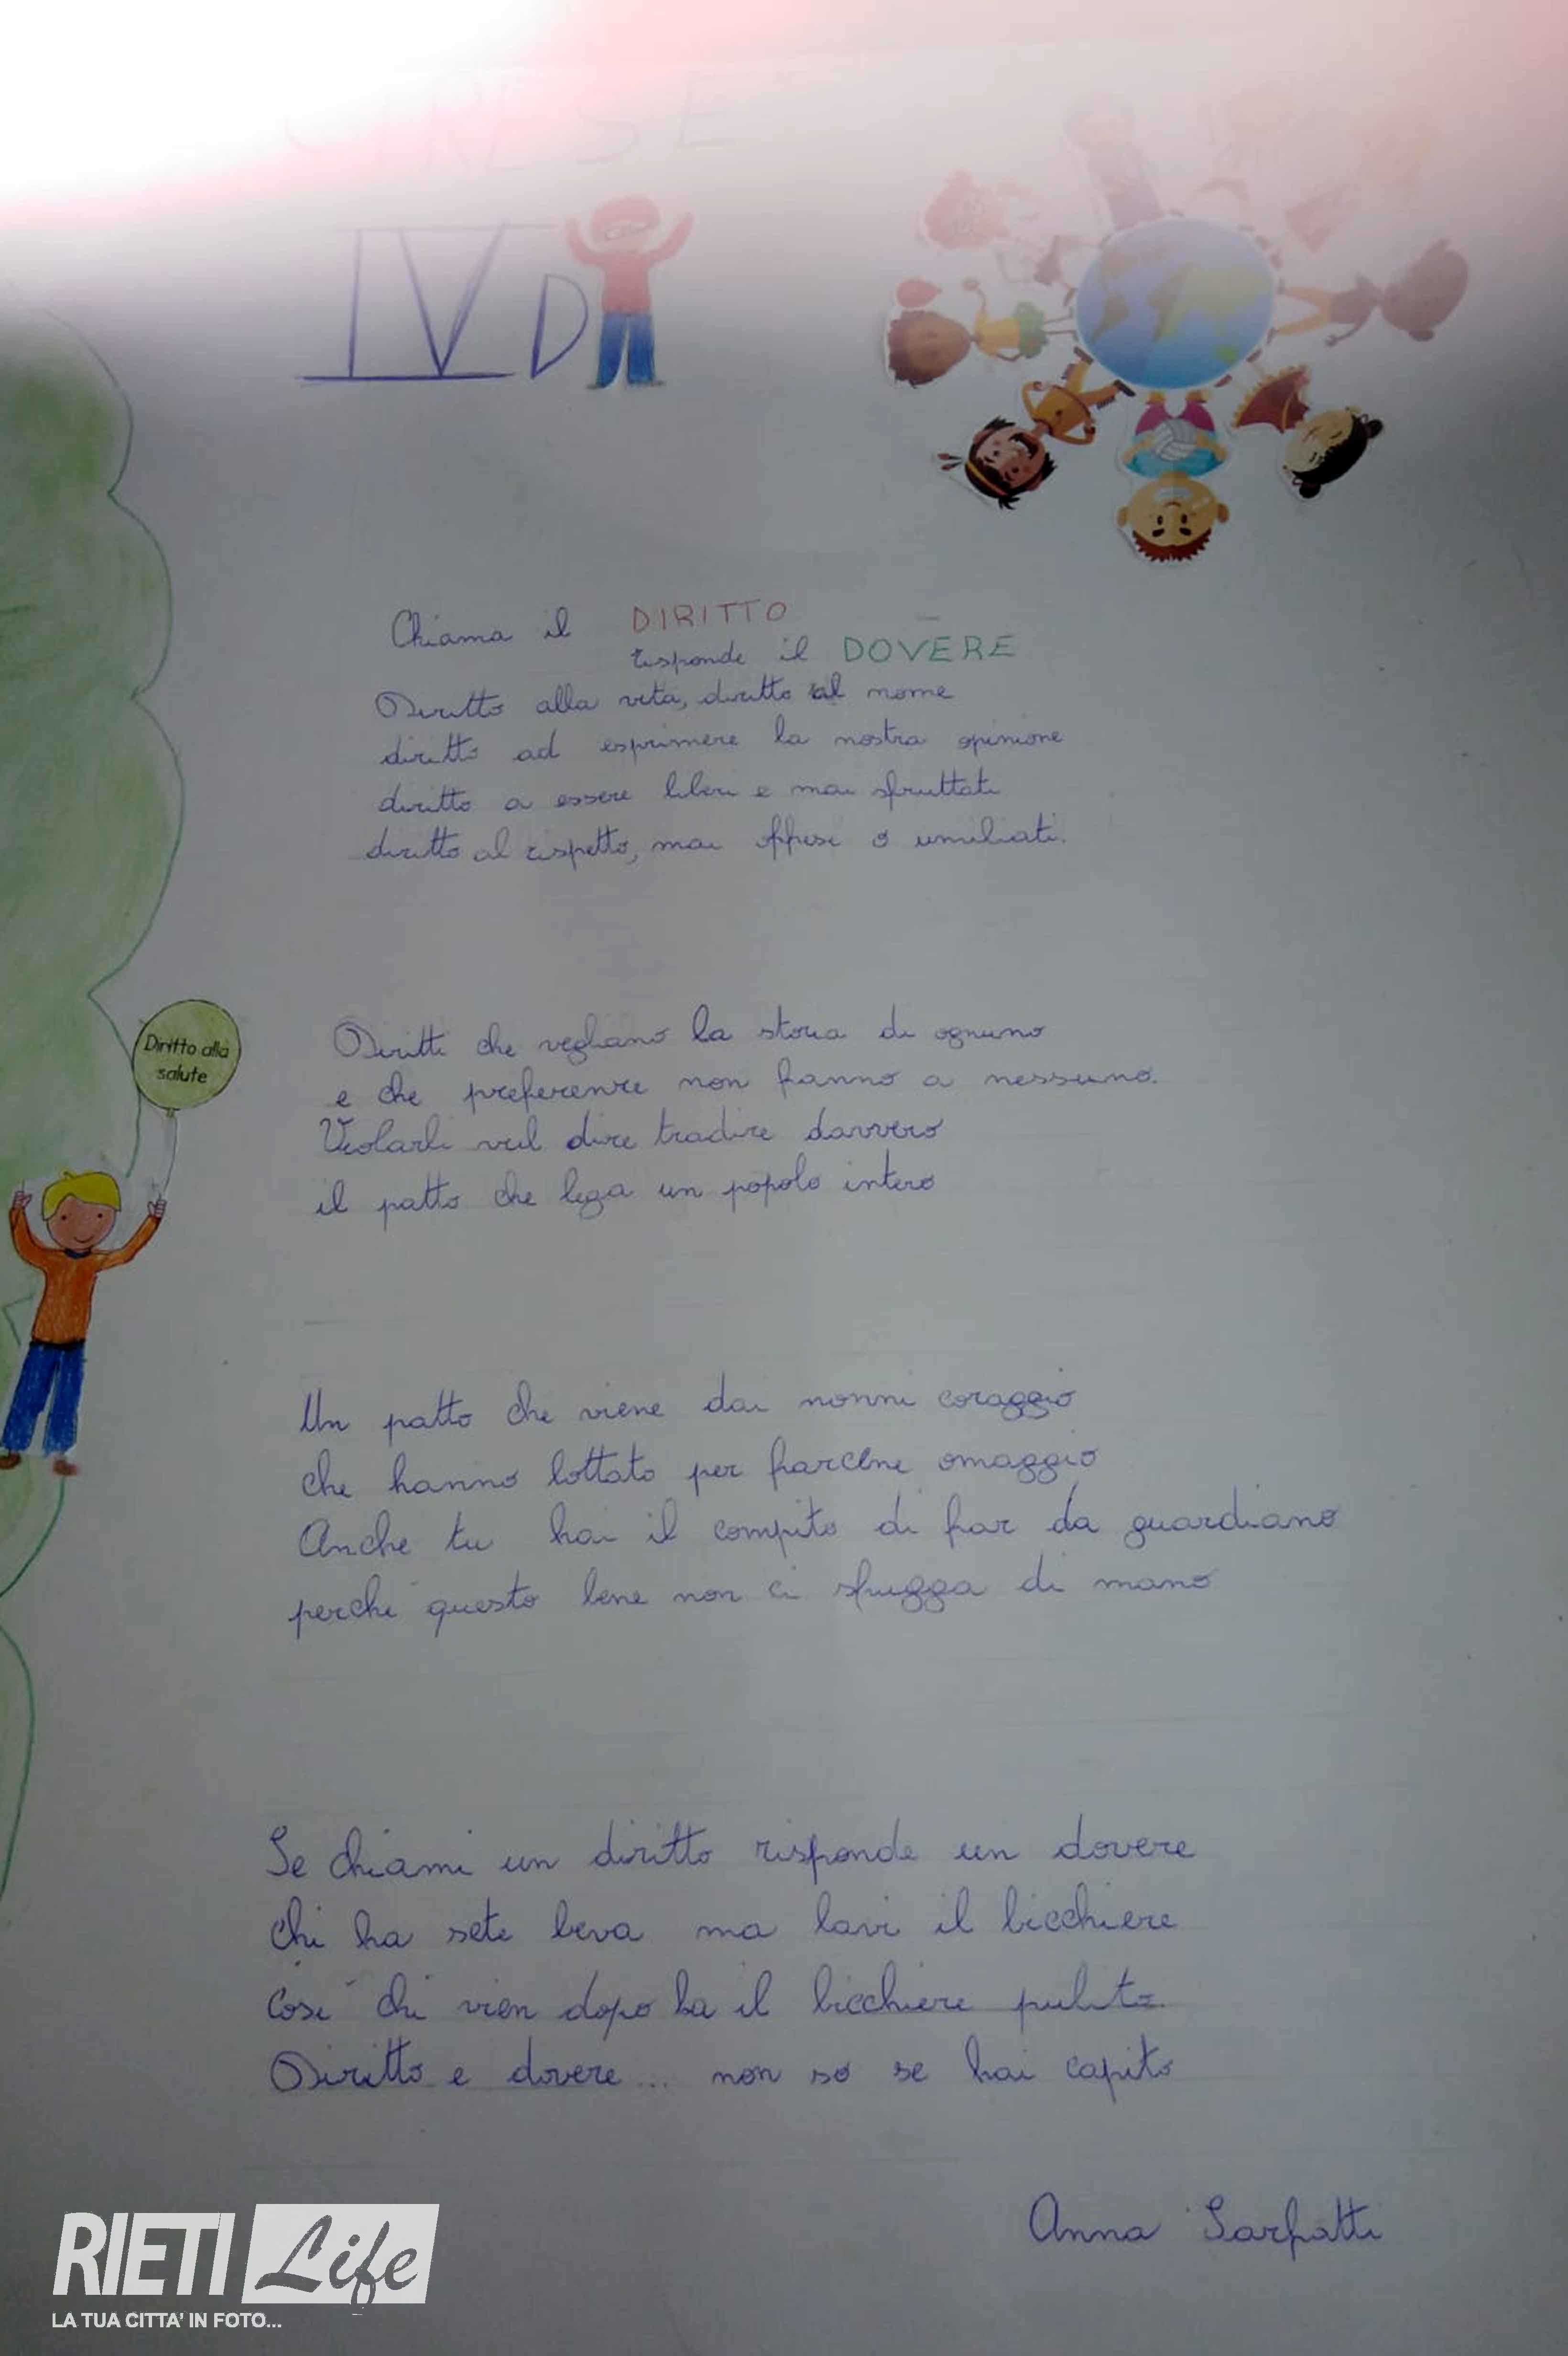 IV D
Chiama il DIRITTO
risponde il DOVERE
Diritto alla vita, diritto al nome
diritto ad esprimere la nostra opinione
diritto a essere liberi e mai sfruttati
diritto al rispetto, mai offesi o umiliati.
Diritto alla
salute
Diritti che vegliano la storia di ognuno
e che preferenze non fanno a nessuno.
Violarli vul dire tradire davvero
il patto che lega un popolo intero
Un patto che viene dai nonni coraggio
che hanno lottato per farcene omaggio
Anche tu hai il compito di far da guardiano
perché questo bene non ci sfugga di mano
Se chiami un diritto risponde un dovere
Chi ha sete beva ma lavi il bicchiere
Così chi vien dopo ha il bicchiere pulito.
Diritto e dovere... non so se hai capito
Anna Sarfatti
RIETI Life
LA TUA CITTA' IN FOTO...